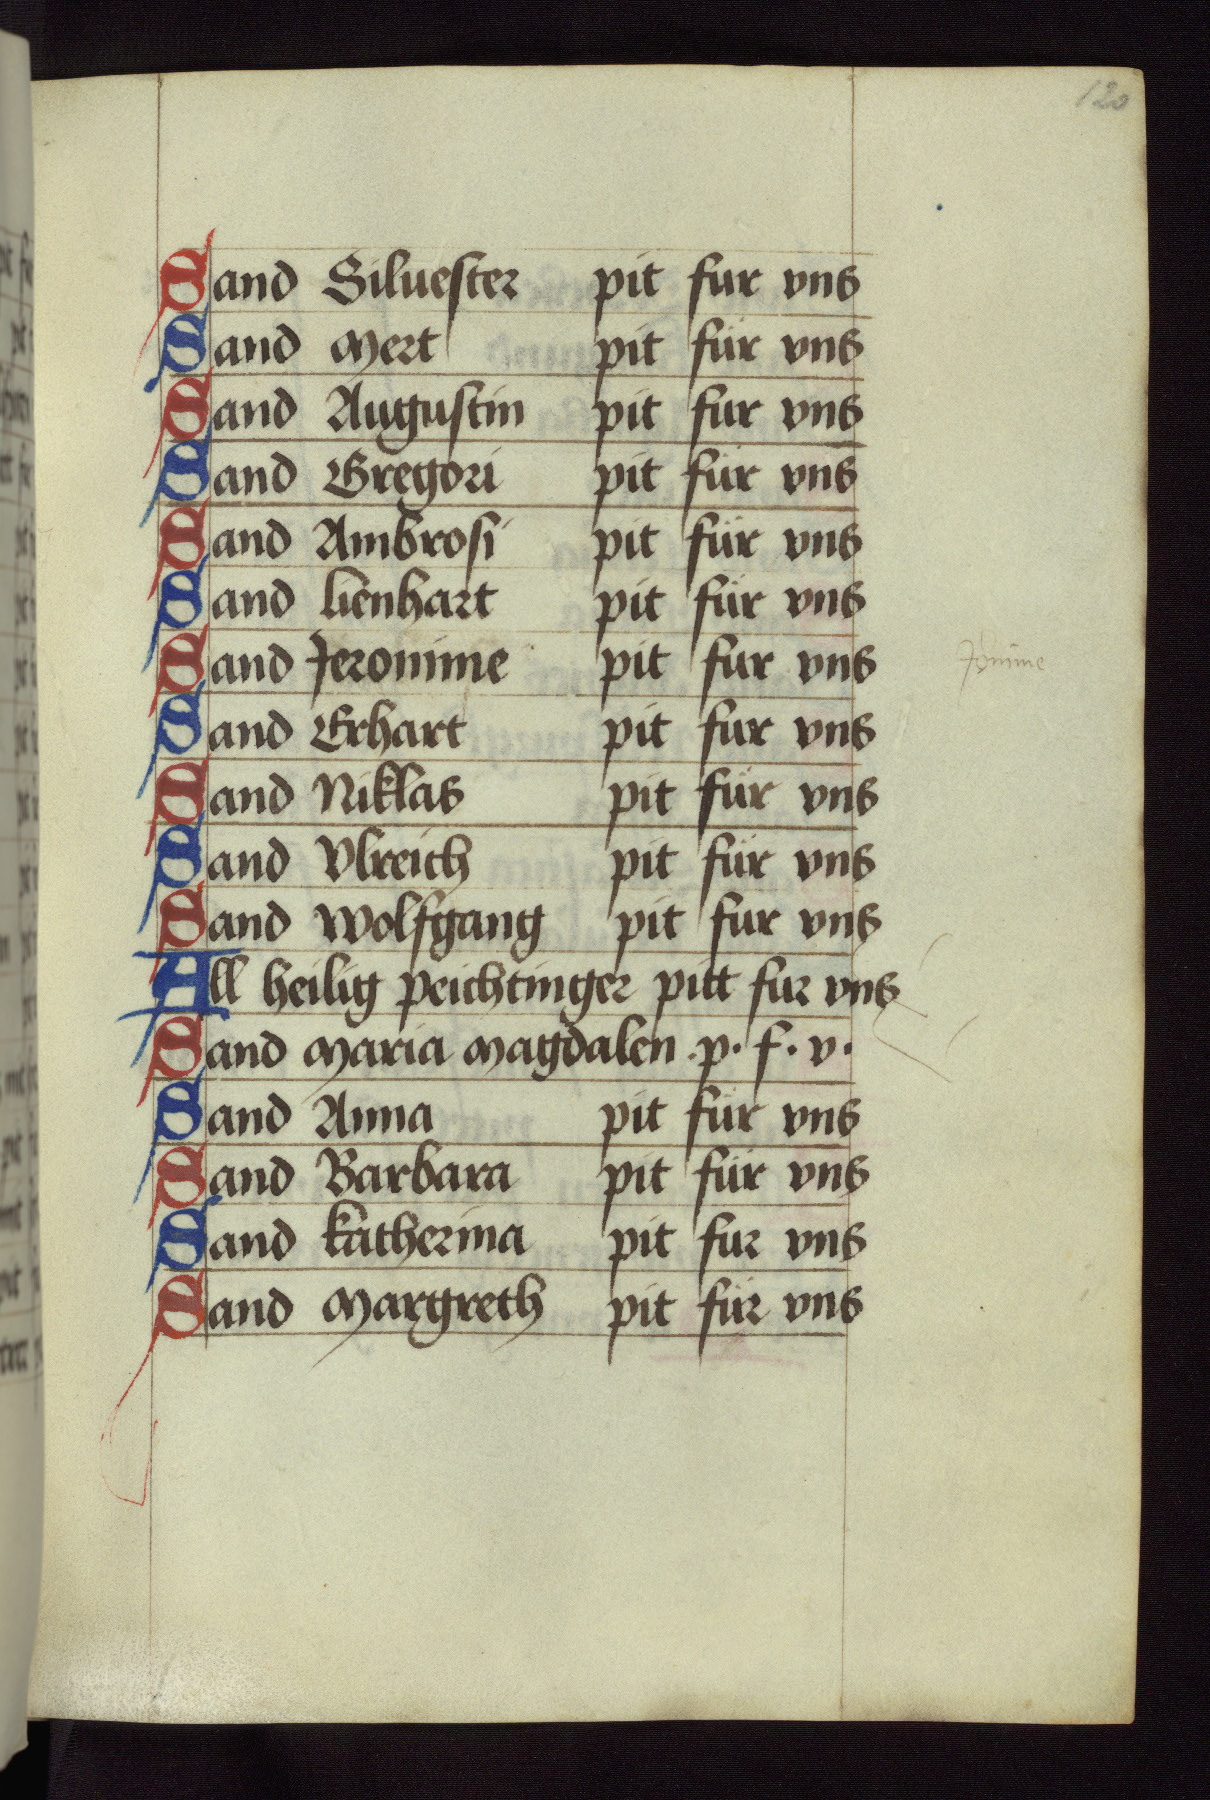 120
Sand Siluester pit fur vns
Sand Mert pit für vns
Sand Augustin pit fur vns
Sand Gregori pit für vns
Sand Ambrosi pit für vns
Sand lienhart pit für vns
Sand Jeronime pit fur vns
Sand Erhart pit fur vns
Sand Niklas pit für vns
Sand Vlreich pit für vns
Sand Wolfgang pit fur vns
All heilig peichtinger pitt fur vns
Sand Maria Magdalen .p. f. v.
Sand Anna pit für vns
Sand Barbara pit für vns
Sand katherina pit fur vns
Sand Margreth pit für vns